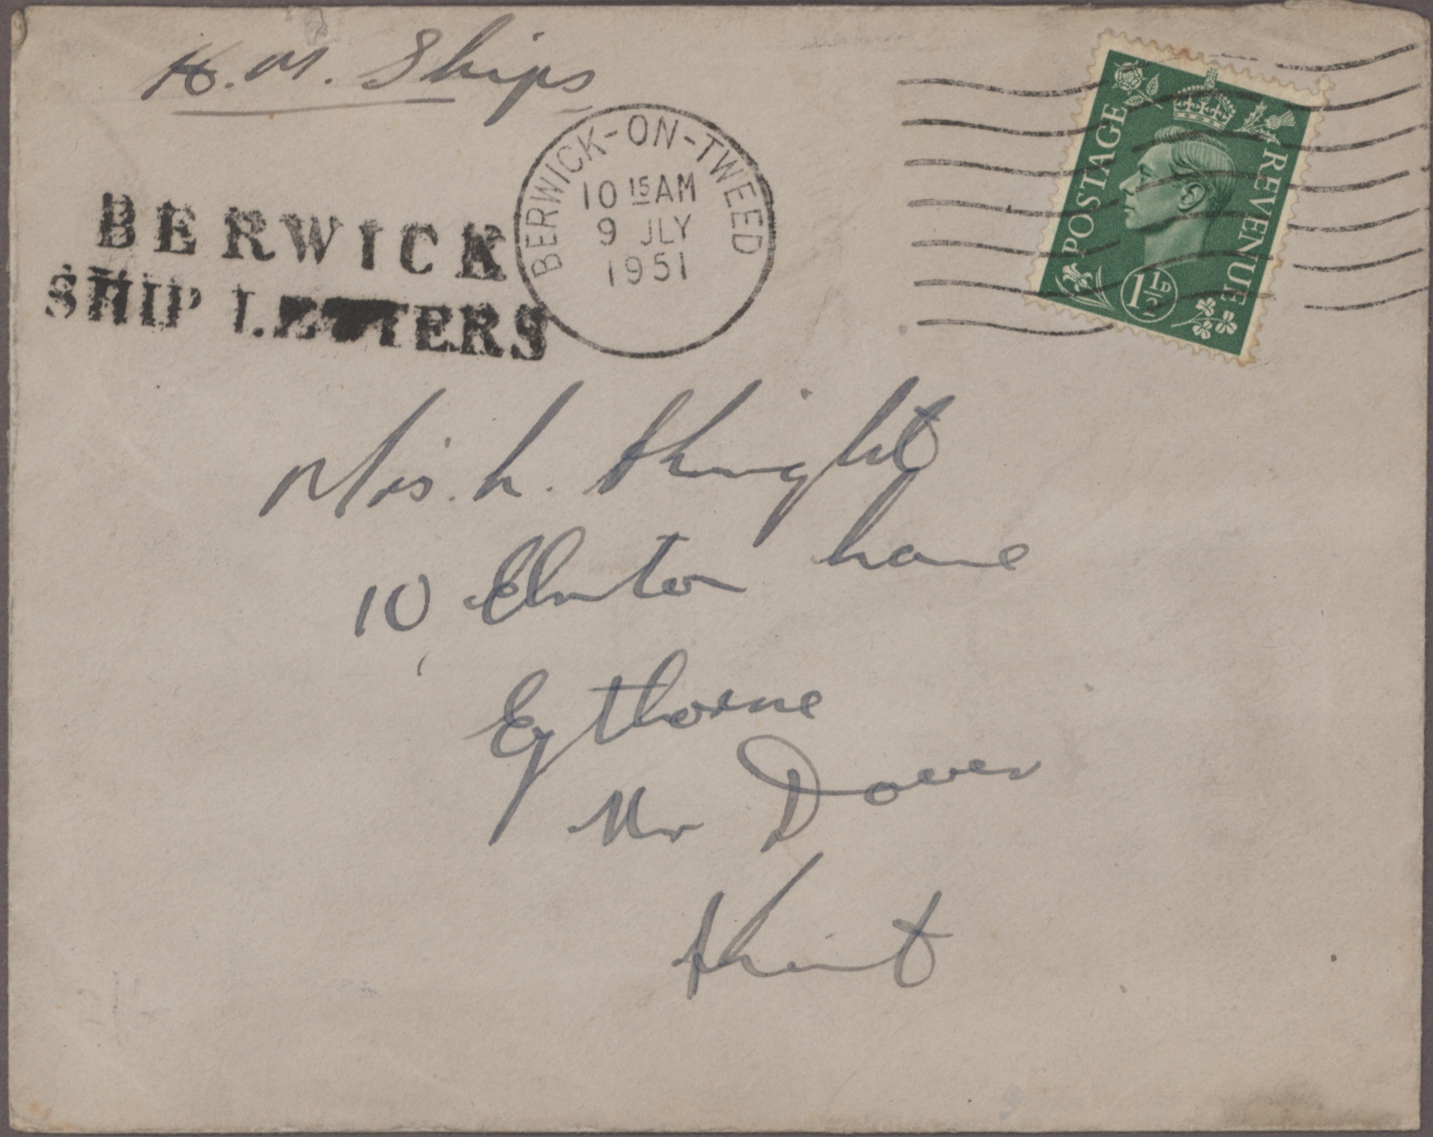 H.M. Ships
BERWICK
SHIP LETTERS
BERWICK-ON-TWEED
10 15 AM
9 JLY
1951
POSTAGE
REVENUE
1½D
Mrs. L. Knight
10 Elmton Lane
Eythorne
Nr Dover
Kent